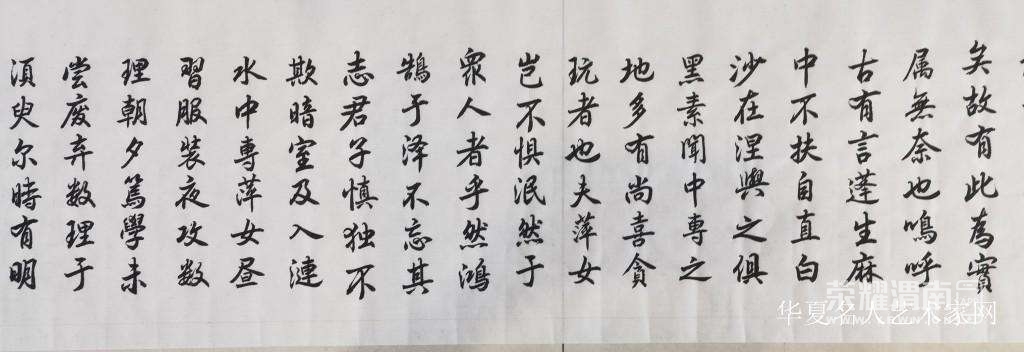 矣故有此為實
属無奈也鳴呼
古有言蓬生麻
中不扶自直白
沙在涅與之俱
黑素聞中專之
地多有尚喜貪
玩者也夫萍女
岂不惧泯然于
眾人者乎然鴻
鵠于泽不忘其
志君子慎独不
欺暗室及入漣
水中專萍女昼
習服裝夜攻数
理朝夕篤學未
尝废弃数理于
須臾尔時有明
荣耀渭南网
华夏名人艺术家网